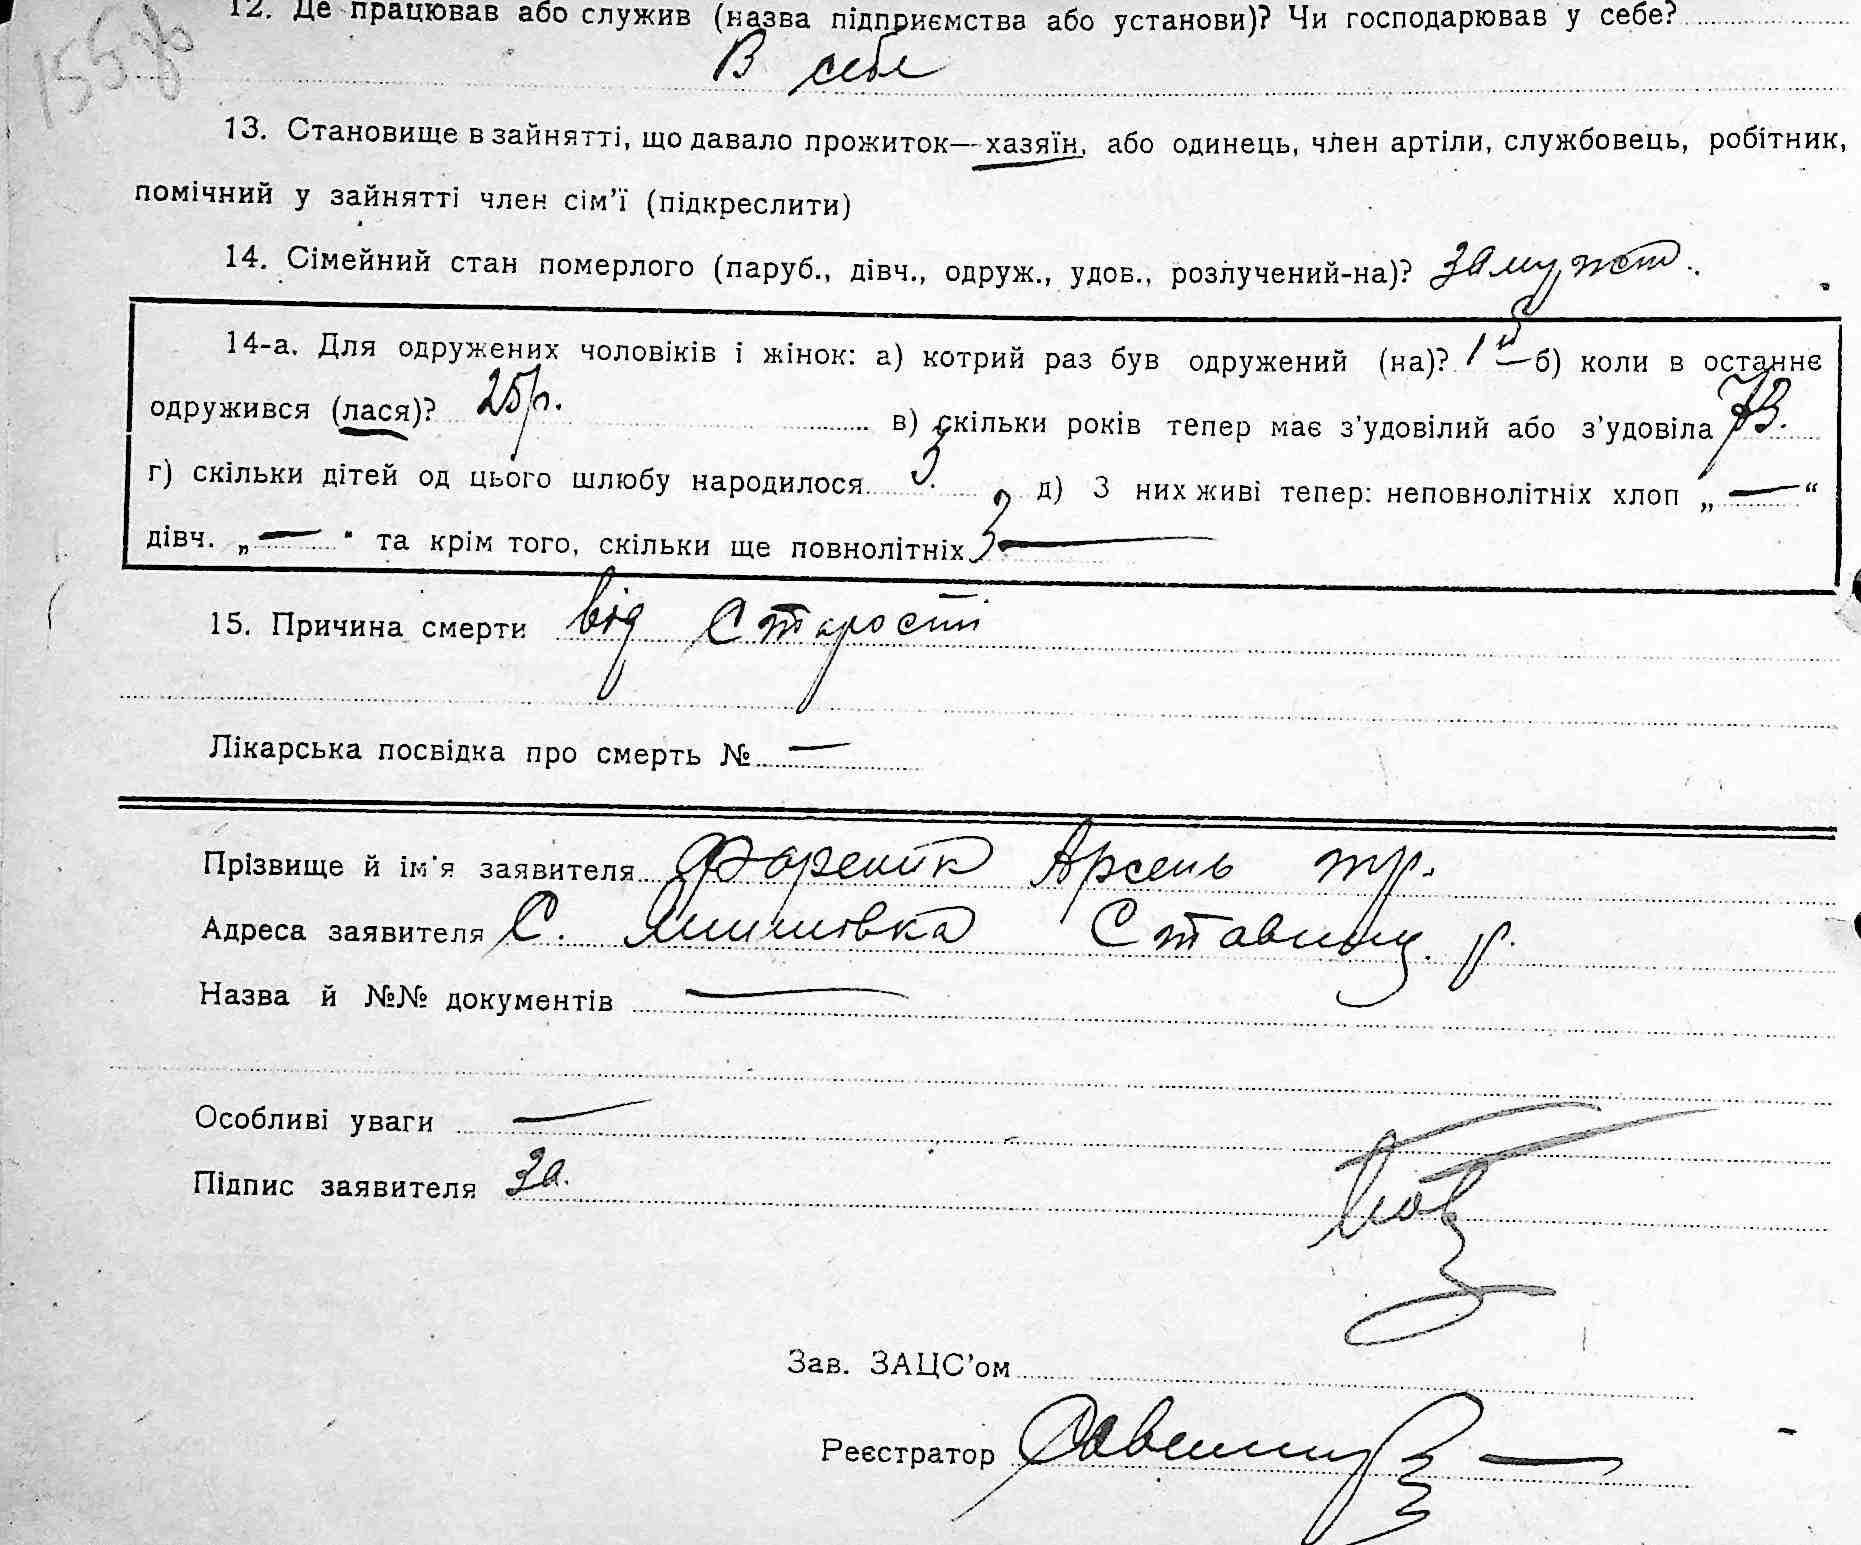 155зв
12. Де працював або служив (назва підприємства або установи)? Чи господарював у себе?
В себе
13. Становище в зайнятті, що давало прожиток—хазяїн, або одинець, член артіли, службовець, робітник,
помічний у зайнятті член сім'ї (підкреслити)
14. Сімейний стан померлого (паруб., дівч., одруж., удов., розлучений-на)? замужем
14-а. Для одружених чоловіків і жінок: а) котрий раз був одружений (на)? 1й б) коли в останнє
одружився (лася)? 25р. в) скільки років тепер має з'удовілий або з'удовіла 73.
г) скільки дітей од цього шлюбу народилося 3. д) З них живі тепер: неповнолітніх хлоп „—“
дівч. „—“ та крім того, скільки ще повнолітніх 3—
15. Причина смерти від старості
Лікарська посвідка про смерть № —
Прізвище й ім'я заявителя Фареник Арсень тр.
Адреса заявителя С. Ставищ. р.
Назва й №№ документів —
Особливі уваги —
Підпис заявителя За.
Зав. ЗАЦС'ом
Реєстратор